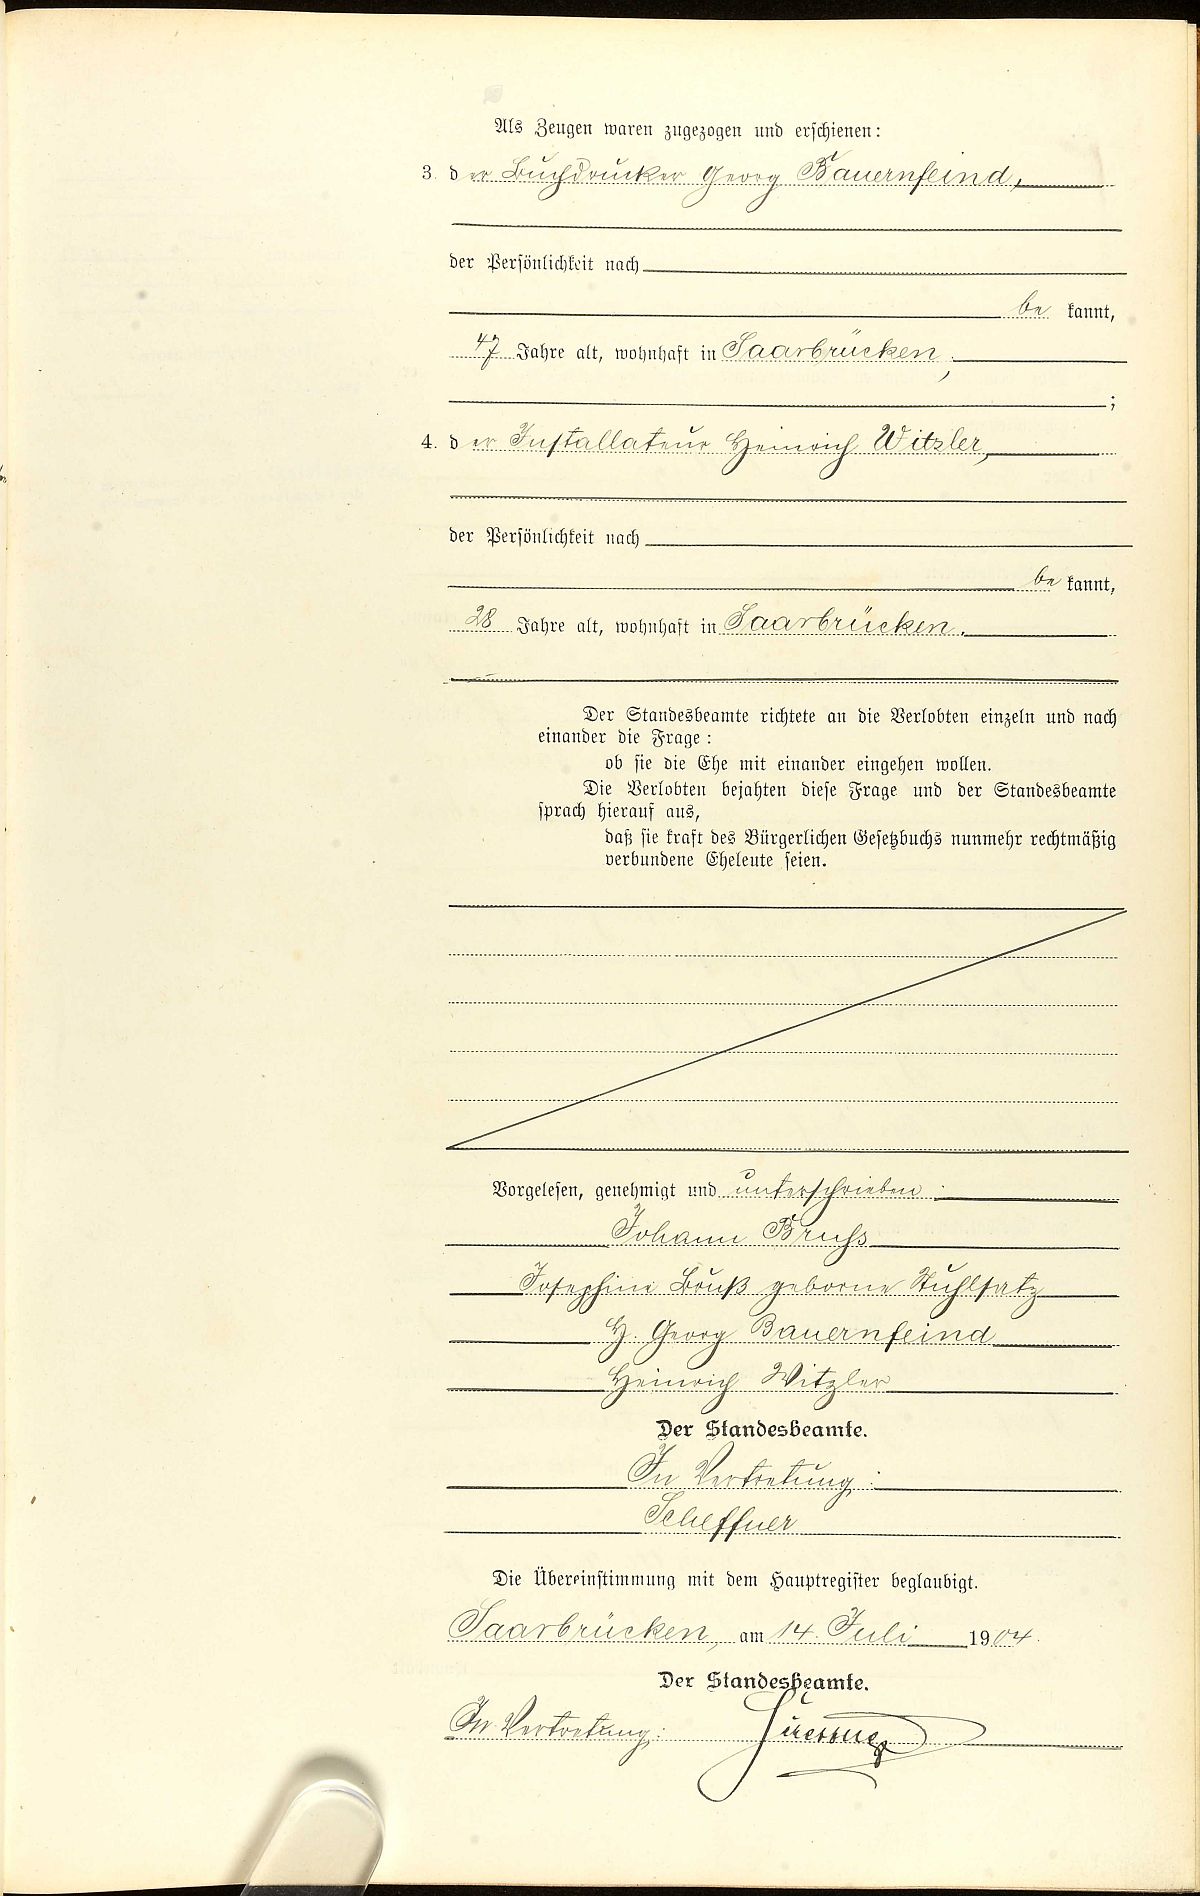 Als Zeugen waren zugezogen und erschienen:
3. der Buchdrucker Georg Bauernfeind,
der Persönlichkeit nach
be kannt,
47 Jahre alt, wohnhaft in Saarbrücken,
;
4. der Installateur Heinrich Witzler,
der Persönlichkeit nach
be kannt,
28 Jahre alt, wohnhaft in Saarbrücken.
Der Standesbeamte richtete an die Verlobten einzeln und nach
einander die Frage:
ob sie die Ehe mit einander eingehen wollen.
Die Verlobten bejahten diese Frage und der Standesbeamte
sprach hierauf aus,
daß sie kraft des Bürgerlichen Gesetzbuchs nunmehr rechtmäßig
verbundene Eheleute seien.
Vorgelesen, genehmigt und unterschrieben:
Johann Bruß
Josephine Bruß geborne Stuhlsatz
H. Georg Bauernfeind
Heinrich Witzler
Der Standesbeamte.
In Vertretung:
Scheffner
Die Übereinstimmung mit dem Hauptregister beglaubigt.
Saarbrücken, am 14. Juli 1904.
Der Standesbeamte.
In Vertretung: